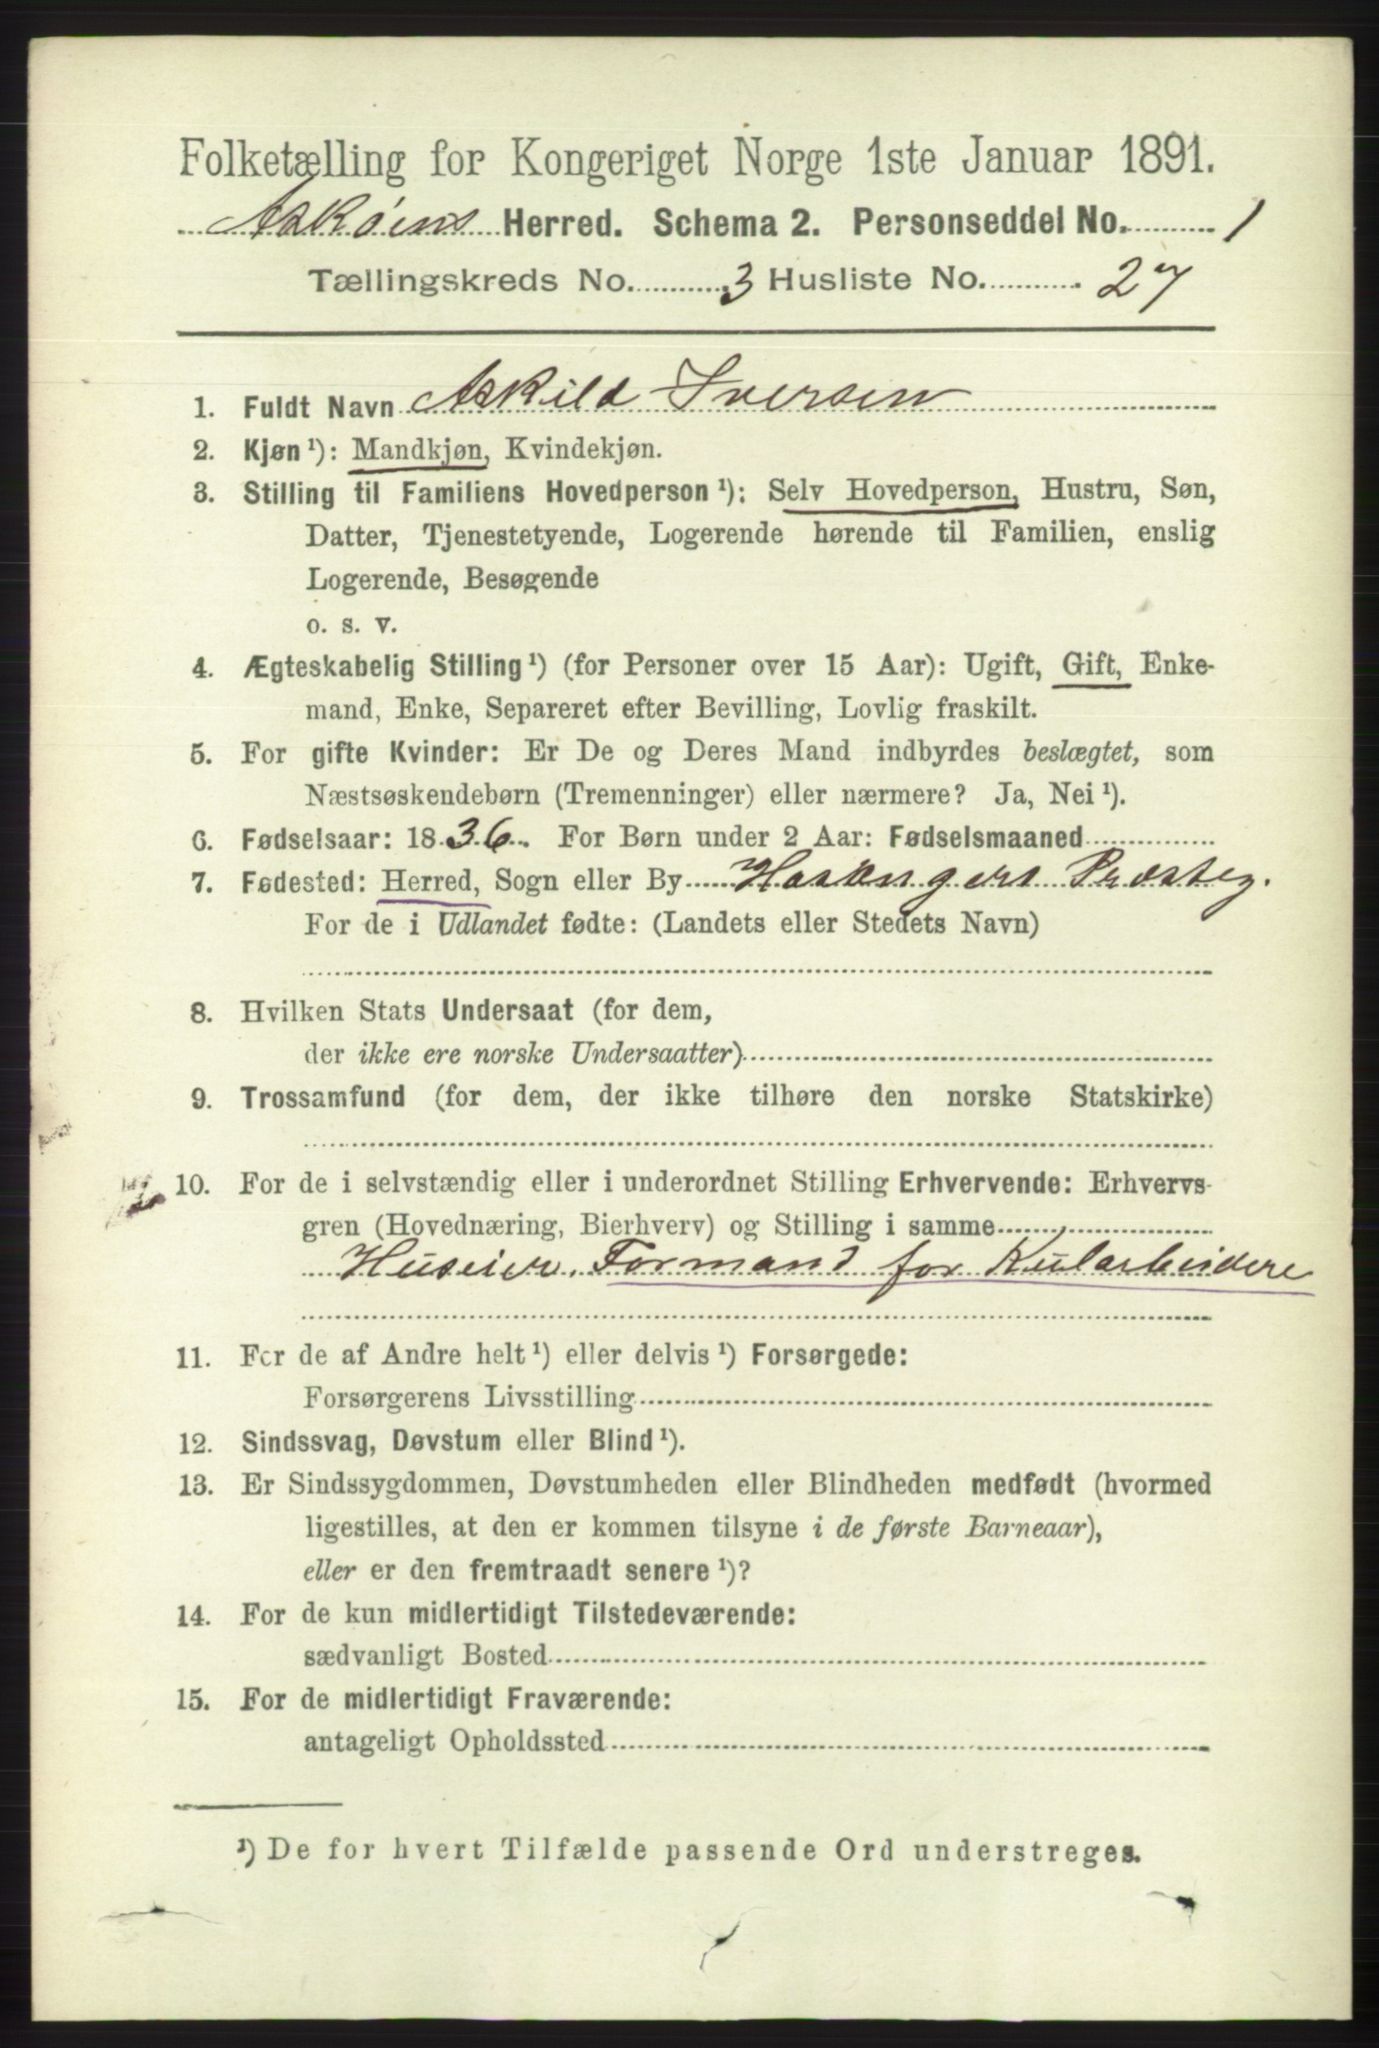 Folketælling for Kongeriget Norge 1ste Januar 1891.
Askøens Herred. Schema 2. Personseddel No. 1
Tællingskreds No. 3 Husliste No. 27
1. Fuldt Navn Askild Iversen
2. Kjøn ¹): Mandkjøn, Kvindekjøn.
3. Stilling til Familiens Hovedperson ¹): Selv Hovedperson, Hustru, Søn,
Datter, Tjenestetyende, Logerende hørende til Familien, enslig
Logerende, Besøgende
o. s. v.
4. Ægteskabelig Stilling ¹) (for Personer over 15 Aar): Ugift, Gift, Enke-
mand, Enke, Separeret efter Bevilling, Lovlig fraskilt.
5. For gifte Kvinder: Er De og Deres Mand indbyrdes beslægtet, som
Næstsøskendebørn (Tremenninger) eller nærmere? Ja, Nei ¹).
6. Fødselsaar: 1836. For Børn under 2 Aar: Fødselsmaaned
7. Fødested: Herred, Sogn eller By Hosangers Præsteg.
For de i Udlandet fødte: (Landets eller Stedets Navn)
8. Hvilken Stats Undersaat (for dem,
der ikke ere norske Undersaatter)
9. Trossamfund (for dem, der ikke tilhøre den norske Statskirke)
10. For de i selvstændig eller i underordnet Stilling Erhvervende: Erhvervs-
gren (Hovednæring, Bierhverv) og Stilling i samme
Huseier. Formand for Kularbeidere
11. For de af Andre helt ¹) eller delvis ¹) Forsørgede:
Forsørgerens Livsstilling
12. Sindssvag, Døvstum eller Blind ¹).
13. Er Sindssygdommen, Døvstumheden eller Blindheden medfødt (hvormed
ligestilles, at den er kommen tilsyne i de første Barneaar),
eller er den fremtraadt senere ¹)?
14. For de kun midlertidigt Tilstedeværende:
sædvanligt Bosted
15. For de midlertidigt Fraværende:
antageligt Opholdssted
¹) De for hvert Tilfælde passende Ord understreges.